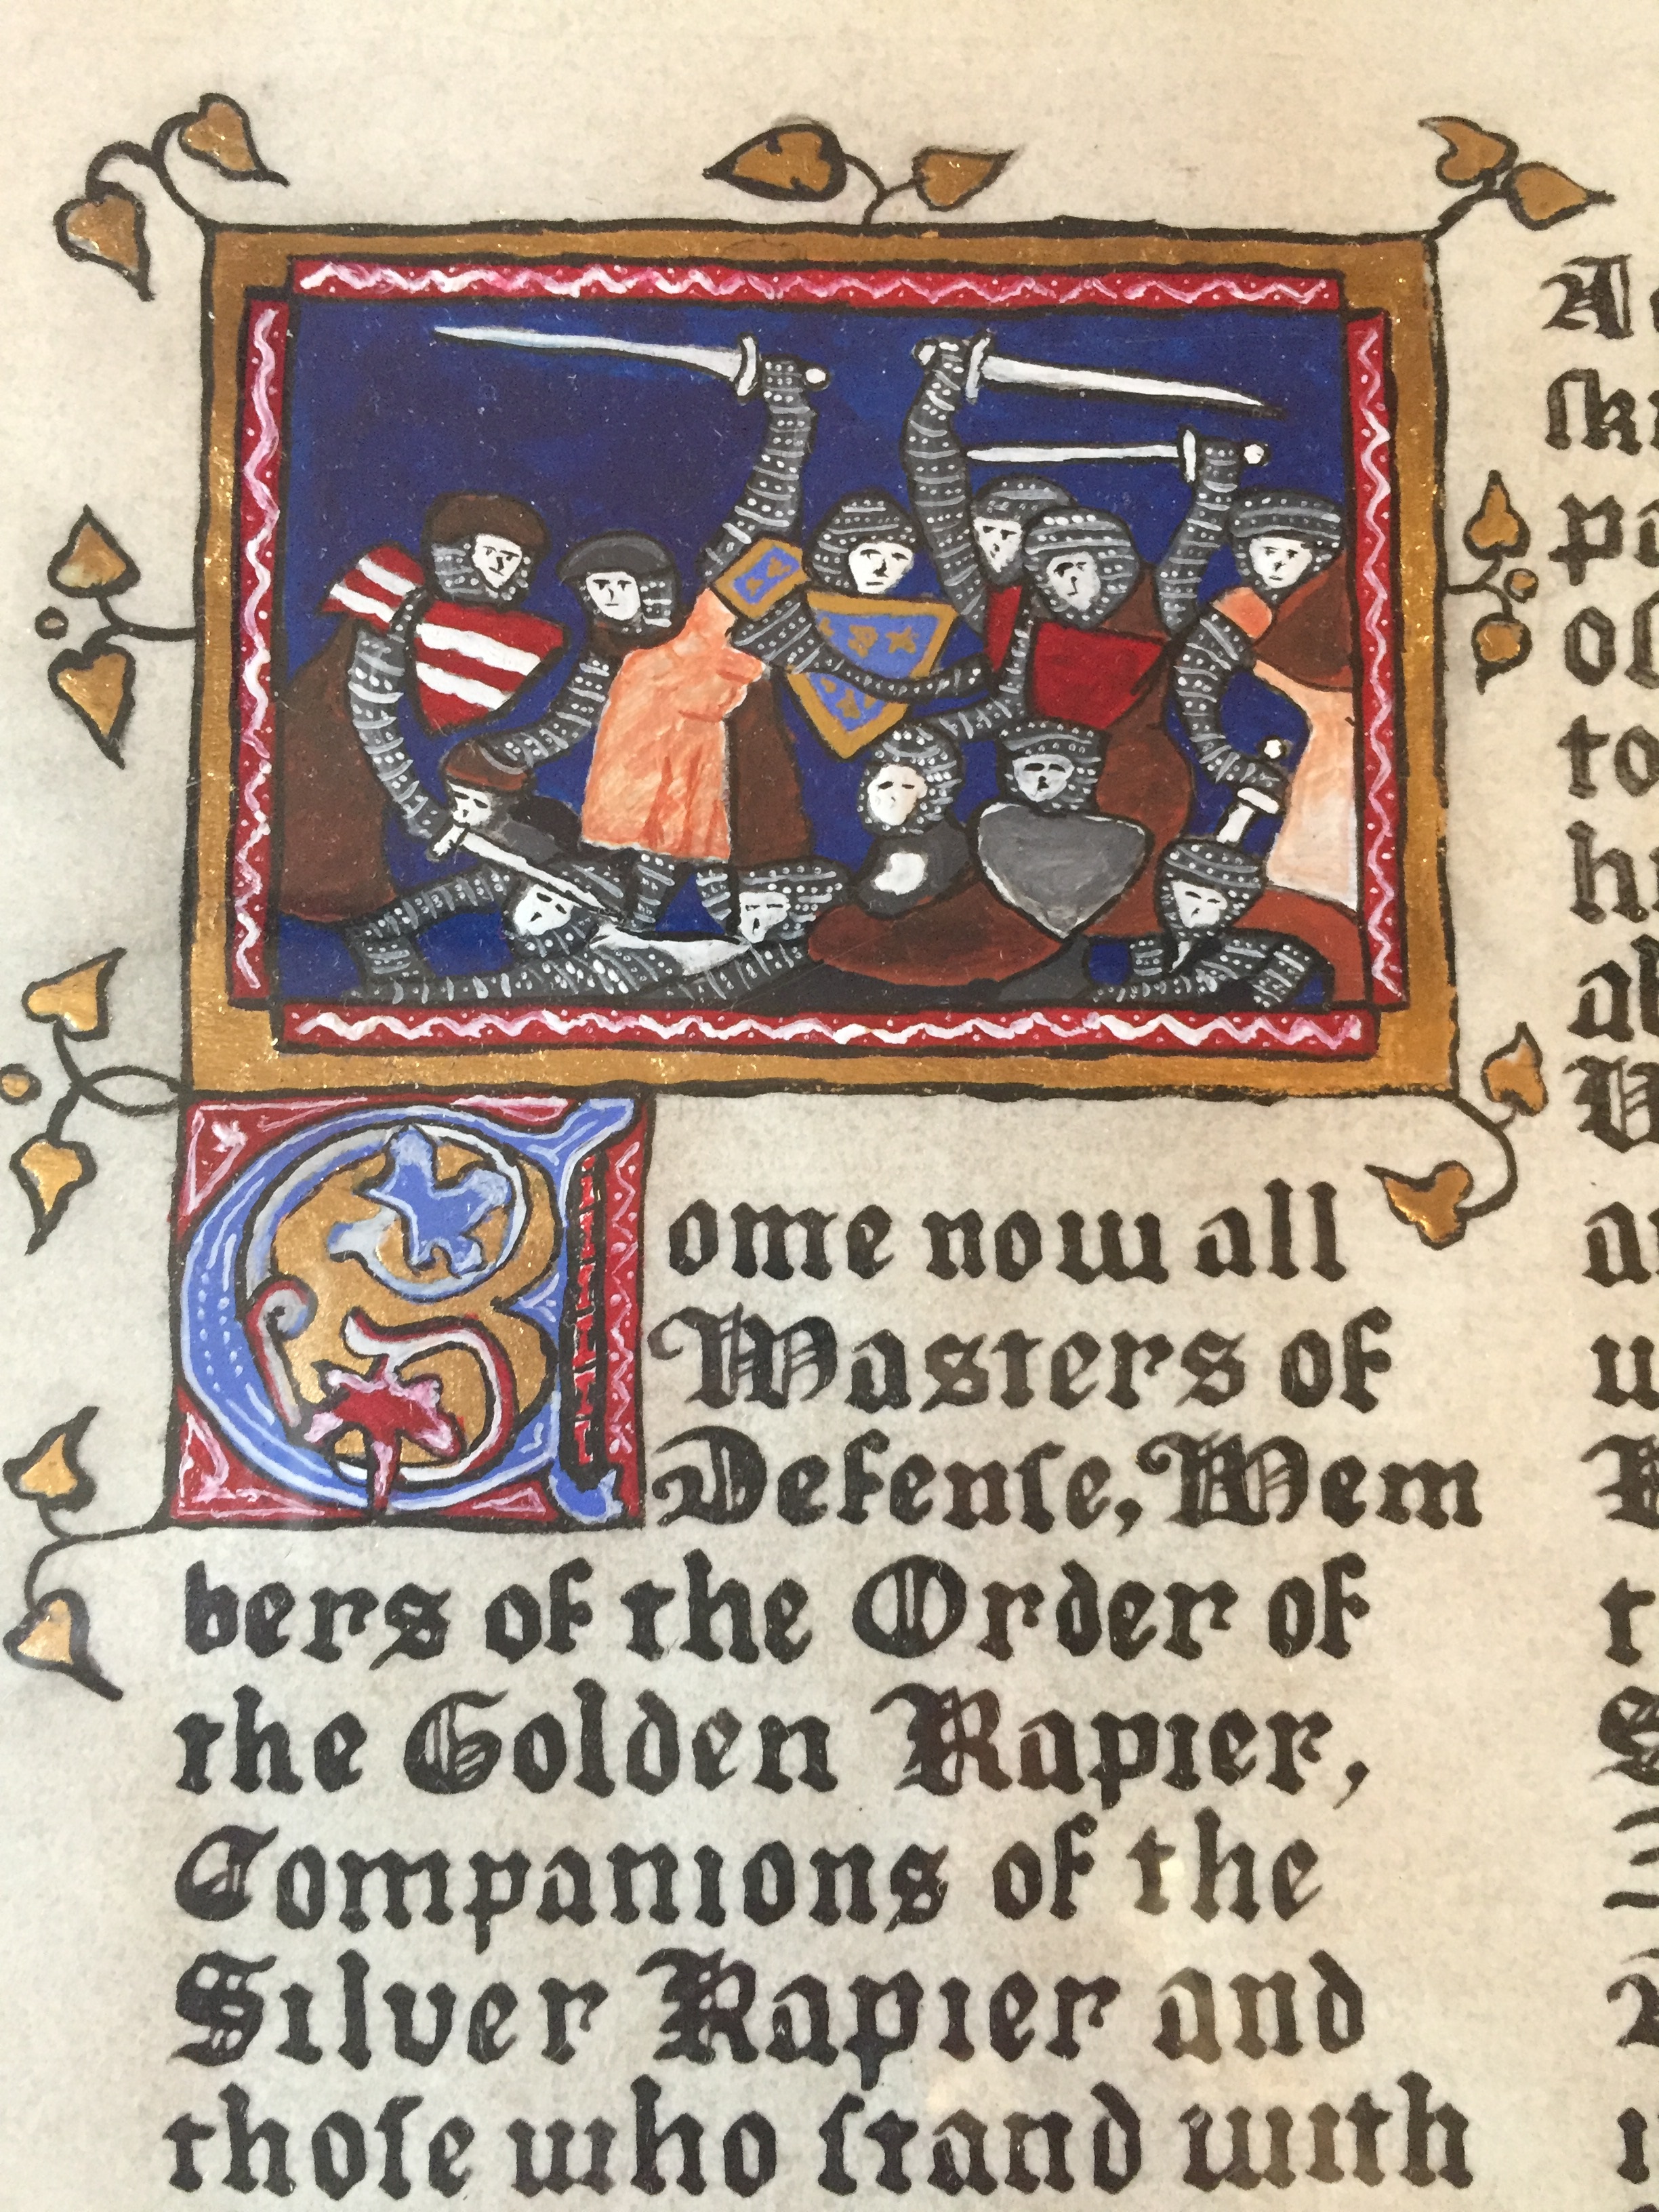 Come now all
Masters of
Defenſe, Mem
bers of the Order of
the Golden Rapier,
Companions of the
Silver Rapier and
thoſe who ſtand with